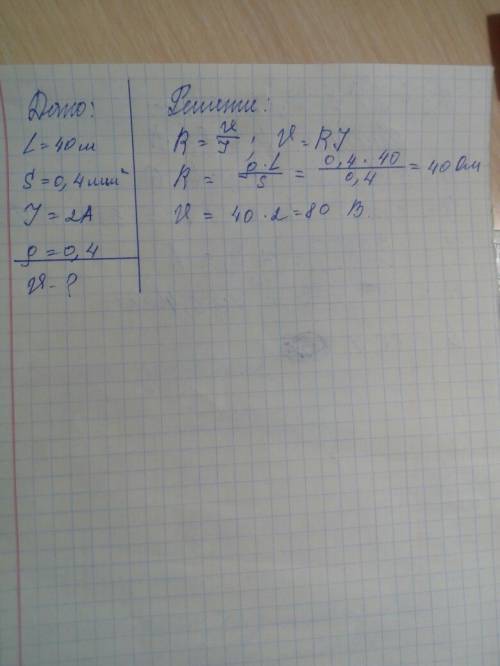 Дано:
L = 40 м
S = 0,4 мм²
I = 2А
ρ = 0,4
U - ?
Решение:
R = U/I ; U = RI
R = ρ·L/S = 0,4·40/0,4 = 40 Ом
U = 40·2 = 80 В